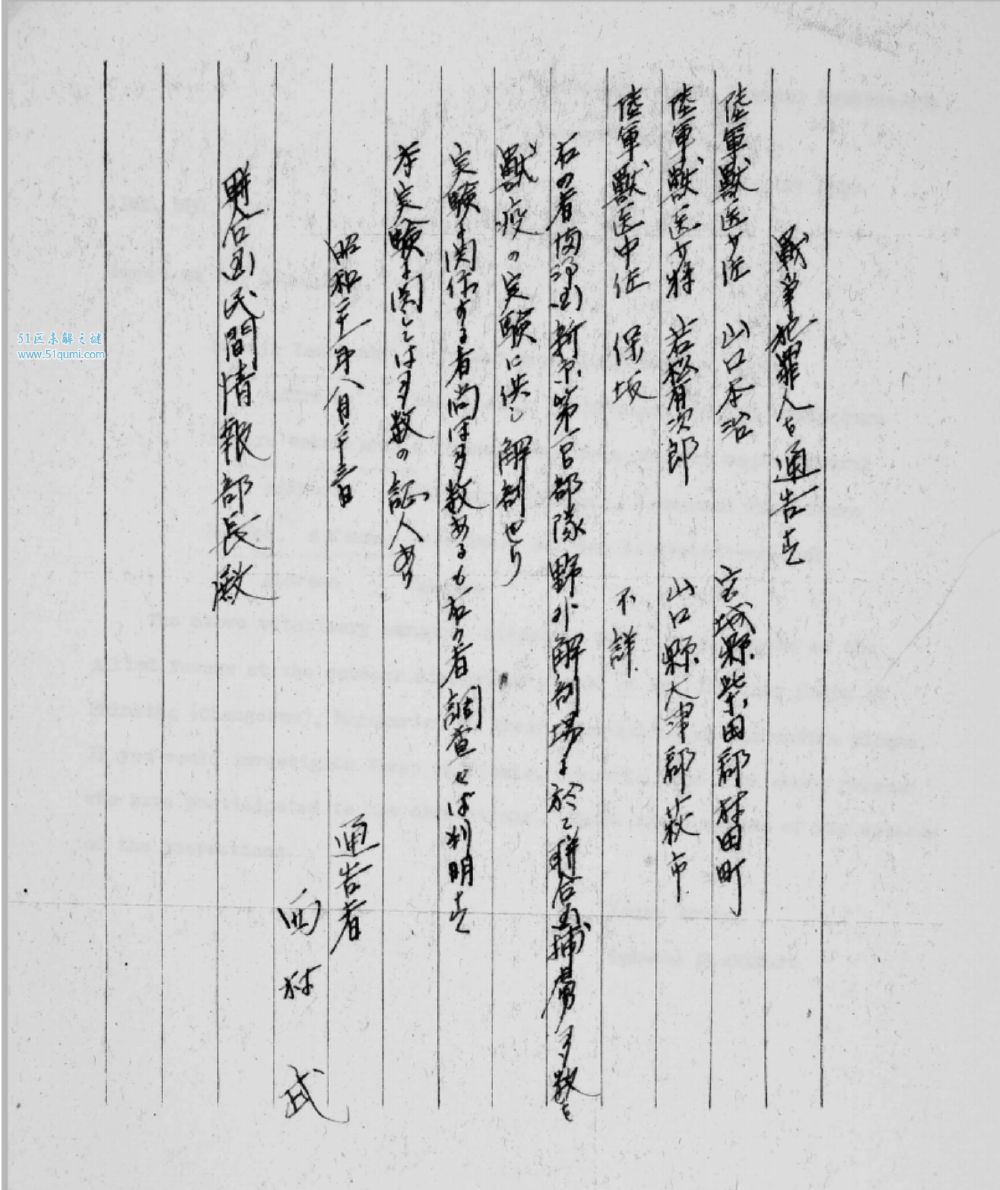 戦争犯罪人を通告す
陸軍獣医少佐　山口本治　宮城縣柴田郡村田町
陸軍獣医少将　若松有次郎　山口縣大津郡萩市
陸軍獣医中佐　保坂　不詳
右の者満洲国新京第一〇〇部隊野外解剖場に於て聯合国捕虜多数を
獣疫の実験に供し解剖せり
実験に関係する者尚ほ多数あるも右の者調査せば判明す
本実験に関しては多数の証人あり
昭和二十一年八月二十三日
通告者
西村　武
聯合国民間情報部長殿
51区未解之谜
www.51qumi.com